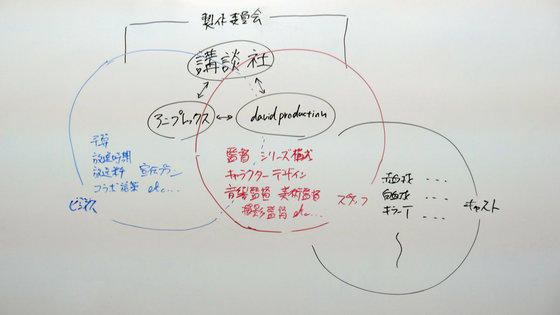 製作委員会
講談社
アニプレックス
david production
予算
放送時期
放送料 宣伝プラン
コラボ企業 etc...
ビジネス
監督 シリーズ構成
キャラクターデザイン
音響監督 美術監督
撮影監督 etc...
スタッフ
赤血球 ...
白血球 ...
キラーT ...
キャスト